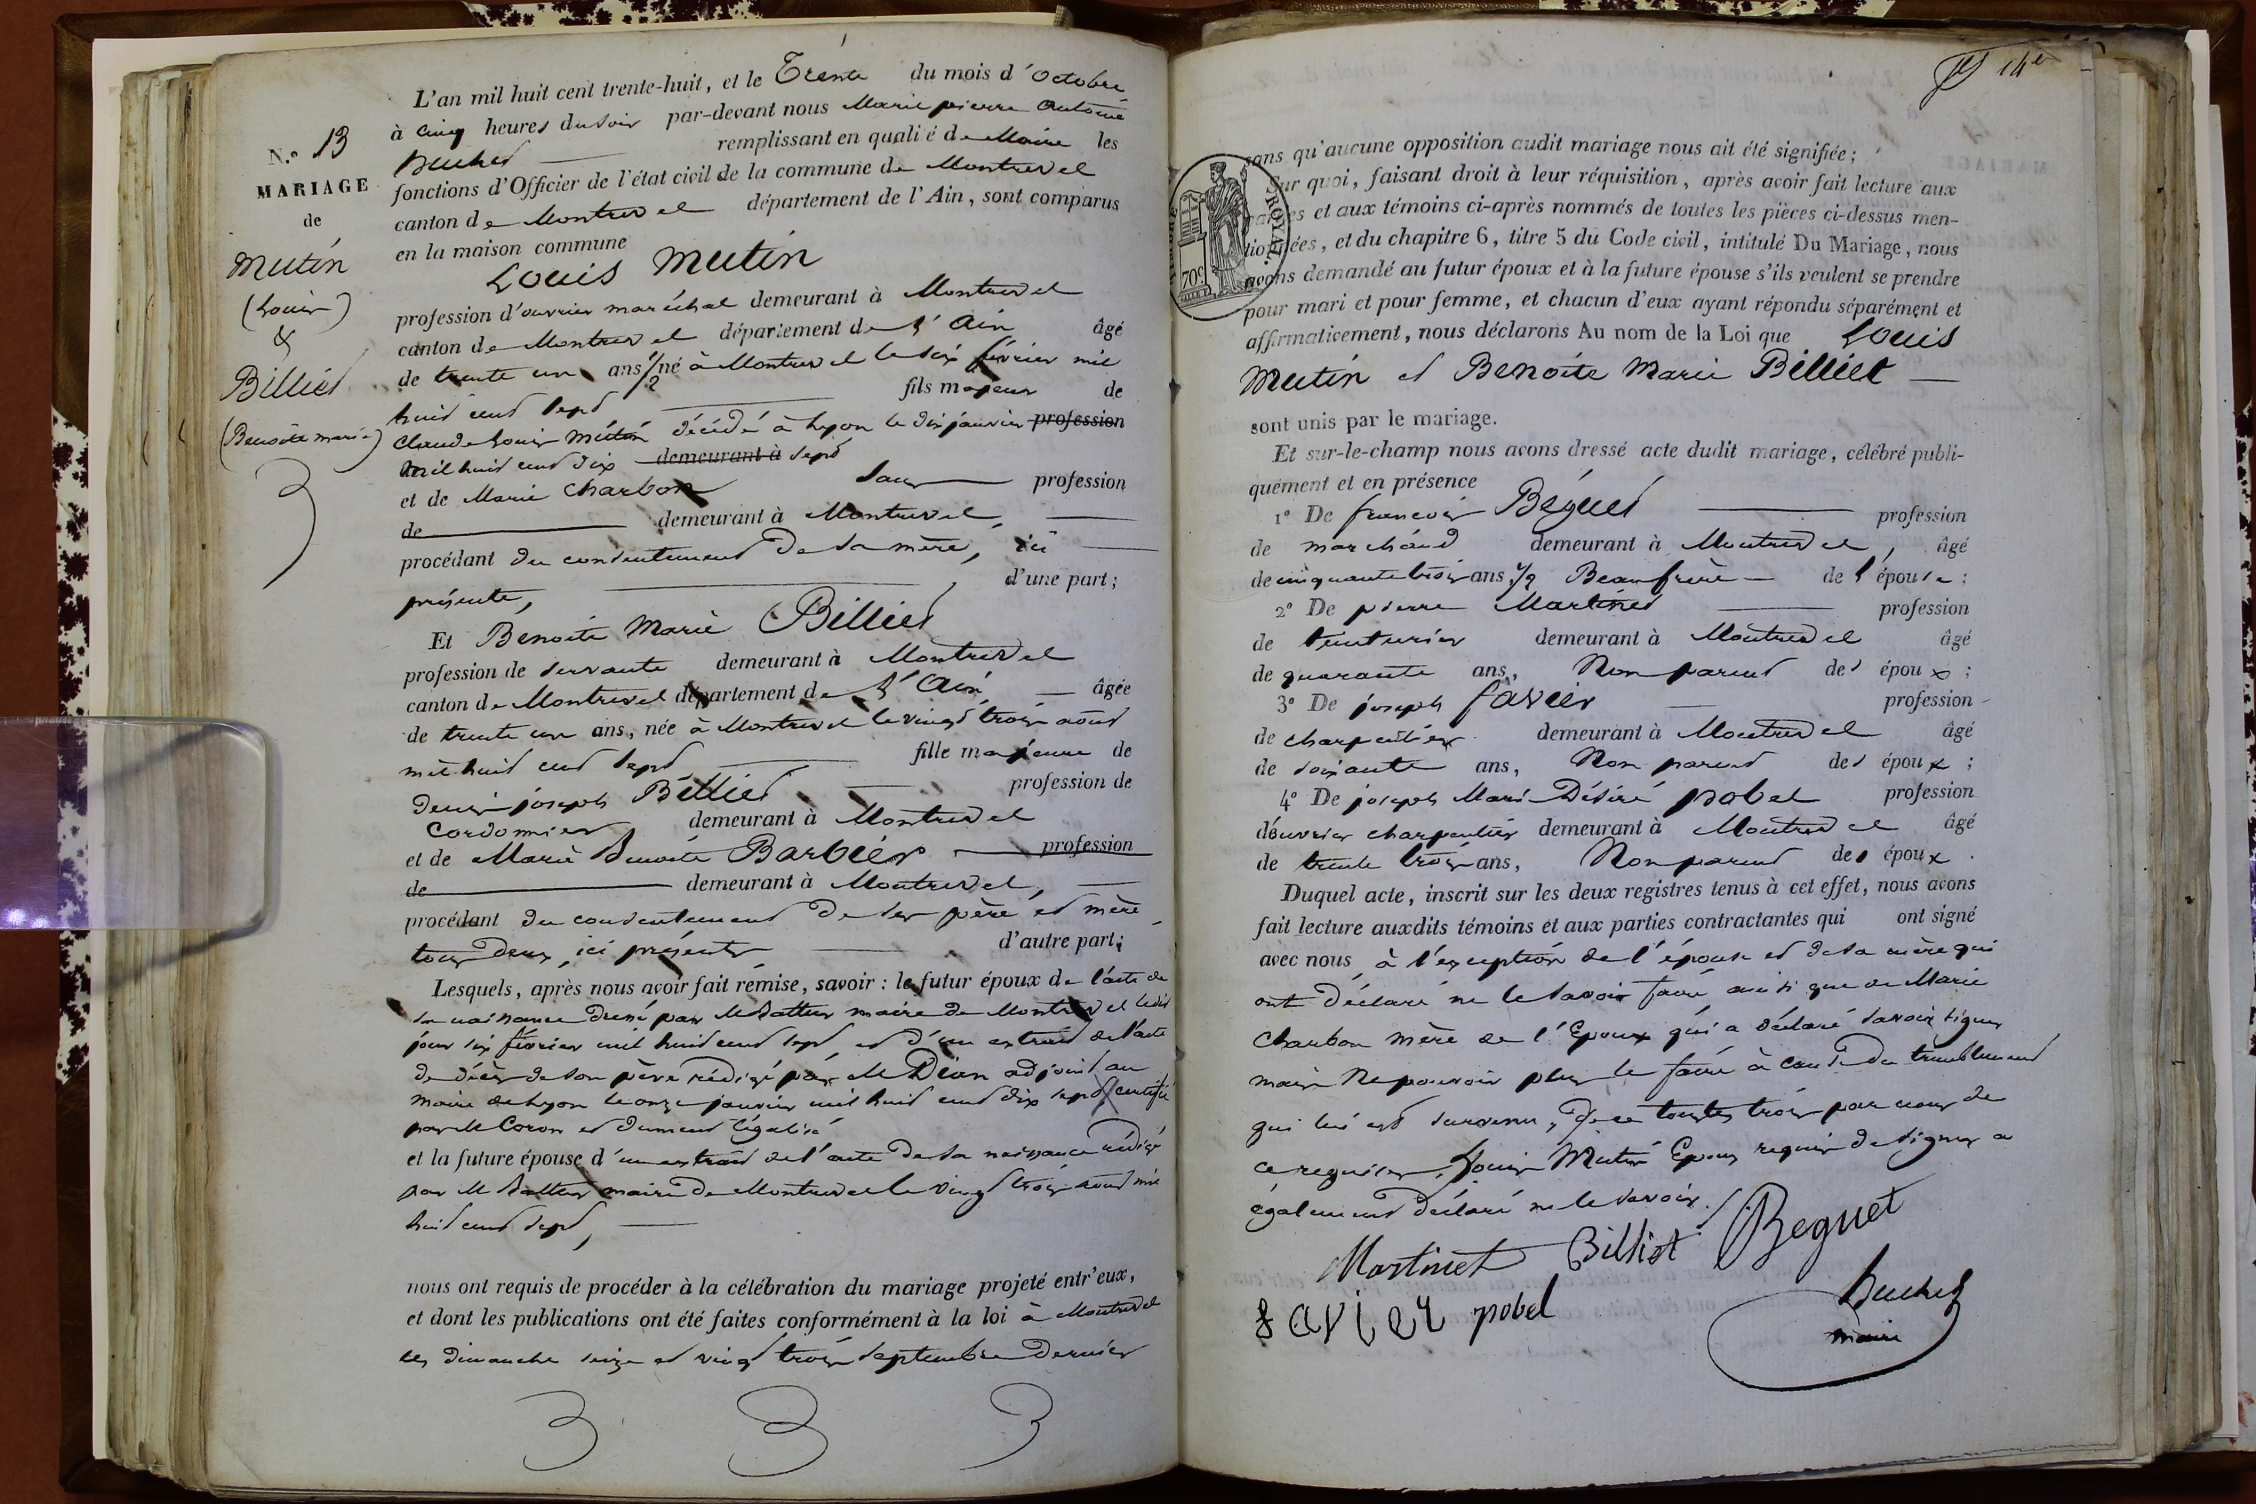 N.° 13
MARIAGE
de
Mutin
(Louis)
&
Billiet
(Benoite marie)
L'an mil huit cent trente-huit, et le Trente du mois d'Octobre
à cinq heures du soir par-devant nous Marie pierre Antoine
Buchet remplissant en qualité de Maire les
fonctions d'Officier de l'état civil de la commune de Montrevel
canton de Montrevel département de l'Ain, sont comparus
en la maison commune
Louis Mutin
profession d'ouvrier maréchal demeurant à Montrevel
canton de Montrevel département de l'Ain âgé
de trente un ans 1/2 né à Montrevel le six février mil
huit cent sept fils majeur de
Claude Louis Mutin décédé à Lyon le dix janvier profession
mil huit cent dix demeurant à sept
et de Marie Charbon sans profession
de demeurant à Montrevel,
procédant du consentement de sa mère, ici
présente, d'une part;
Et Benoite Marie Billiet
profession de servante demeurant à Montrevel
canton de Montrevel département de l'Ain, âgée
de trente un ans, née à Montrevel le vingt trois août
mil huit cent sept fille majeure de
Denis joseph Billiet profession de
Cordonnier demeurant à Montrevel
et de Marie Benoite Barbier profession
de demeurant à Montrevel,
procédant du consentement de ses père et mère
tous deux ici présents d'autre part;
Lesquels, après nous avoir fait remise, savoir : le futur époux de l'acte de
sa naissance dressé par M maire de Montrevel le dit
jour six février mil huit cent sept et d'un extrait de l'acte
de décès de son père rédigé par M Dian adjoint au
maire de Lyon le onze janvier mil huit cent dix sept certifié
par M Coron et dument légalisé
et la future épouse d'un extrait de l'acte de sa naissance rédigé
par M maire de Montrevel le vingt trois août mil
huit cent sept,
nous ont requis de procéder à la célébration du mariage projeté entr'eux,
et dont les publications ont été faites conformément à la loi à Montrevel
les dimanche seize et vingt trois septembre dernier
14e
sans qu'aucune opposition audit mariage nous ait été signifiée;
Sur quoi, faisant droit à leur réquisition, après avoir fait lecture aux
parties et aux témoins ci-après nommés de toutes les pièces ci-dessus men-
tionnées, et du chapitre 6, titre 5 du Code civil, intitulé Du Mariage, nous
avons demandé au futur époux et à la future épouse s'ils veulent se prendre
pour mari et pour femme, et chacun d'eux ayant répondu séparément et
affirmativement, nous déclarons Au nom de la Loi que Louis
Mutin et Benoite Marie Billiet
sont unis par le mariage.
Et sur-le-champ nous avons dressé acte dudit mariage, célébré publi-
quement et en présence
1° De francois Béguet profession
de marchand demeurant à Montrevel, âgé
de cinquante trois ans 1/2 Beaufrère de l'épouse;
2° De pierre Martinet profession
de teinturier demeurant à Montrevel âgé
de quarante ans, Non parent des époux;
3° De joseph favier profession
de charpentier demeurant à Montrevel âgé
de soixante ans, Non parent des époux;
4° De joseph Marie Désiré pobel profession
d'ouvrier charpentier demeurant à Montrevel âgé
de trente trois ans, Non parent des époux.
Duquel acte, inscrit sur les deux registres tenus à cet effet, nous avons
fait lecture auxdits témoins et aux parties contractantes qui ont signé
avec nous à l'exception de l'épouse et de sa mère qui
ont déclaré ne le savoir faire ainsi que de Marie
Charbon mère de l'Epoux qui a déclaré savoir signer
mais Ne pouvoir plus le faire à cause du tremblement
qui lui est survenu, de ce toutes trois par nous de
ce requises, Louis Mutin Epoux requis de signer a
également déclaré ne le savoir.
Martinet Billiet Beguet
favier pobel Buchet
maire
ROYAL
70c